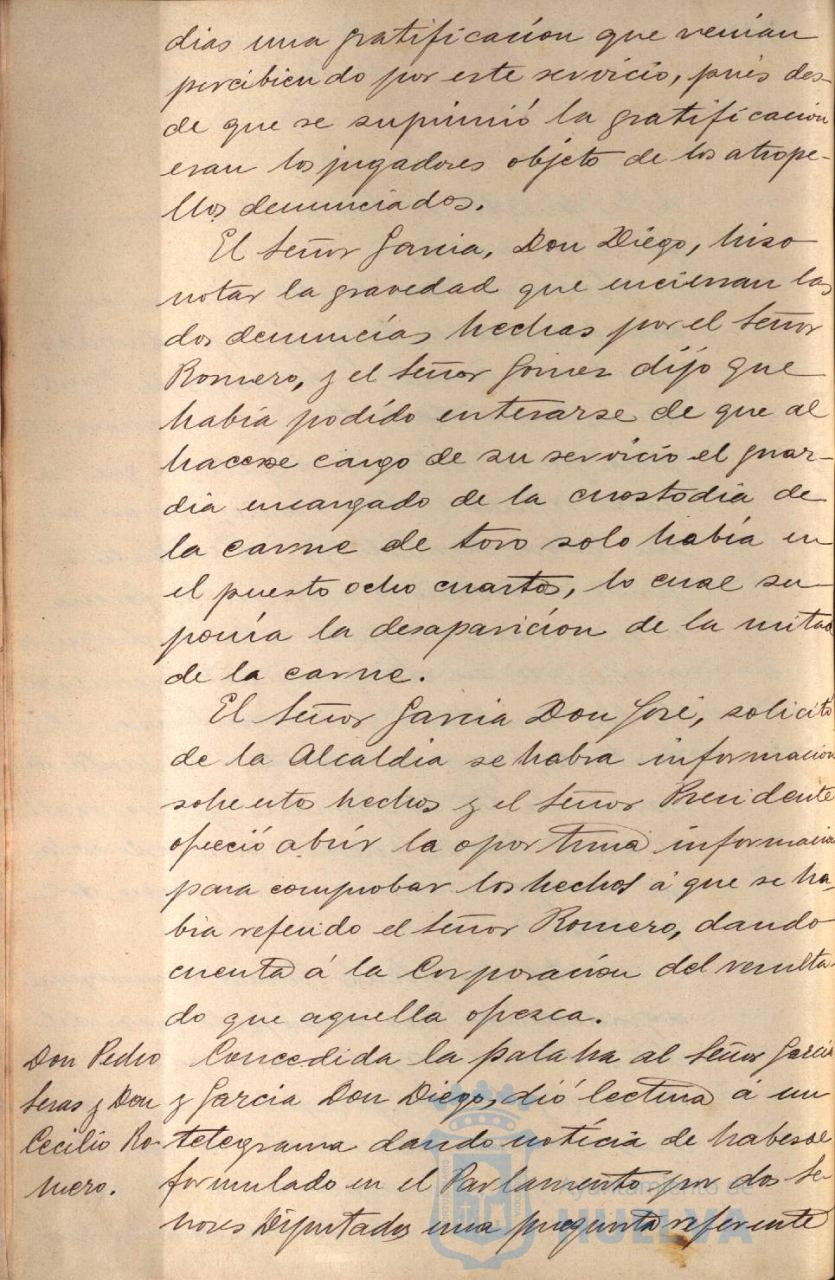 dias una gratificación que venian
percibiendo por este servicio, pues des-
de que se suprimió la gratificación
eran los jugadores objeto de los atrope-
llos denunciados.
El Señor Garcia, Don Diego, hizo
notar la gravedad que encierran las
dos denuncias hechas por el Señor
Romero, y el Señor Gomez dijo que
había podido enterarse de que al
hacerse cargo de su servicio el guar-
dia encargado de la custodia de
la carne de toro solo había en
el puesto ocho cuartos, lo cual su
ponía la desaparicion de la mitad
de la carne.
El Señor Garcia Don José, solicitó
de la Alcaldia se habra informacion
sobre estos hechos y el Señor Presidente
ofreció abrir la oportuna informacion
para comprobar los hechos á que se ha-
bia referido el Señor Romero, dando
cuenta á la Corporación del resulta-
do que aquella ofrezca.
Don Pedro
Seras y Don
Cecilio Ro-
mero.
Concedida la palabra al Señor Garcia
y Garcia Don Diego, dió lectura á un
telegrama dando noticia de haberse
formulado en el Parlamento por dos Se-
ñores Diputados una pregunta referente
Ayuntamiento de
HUELVA